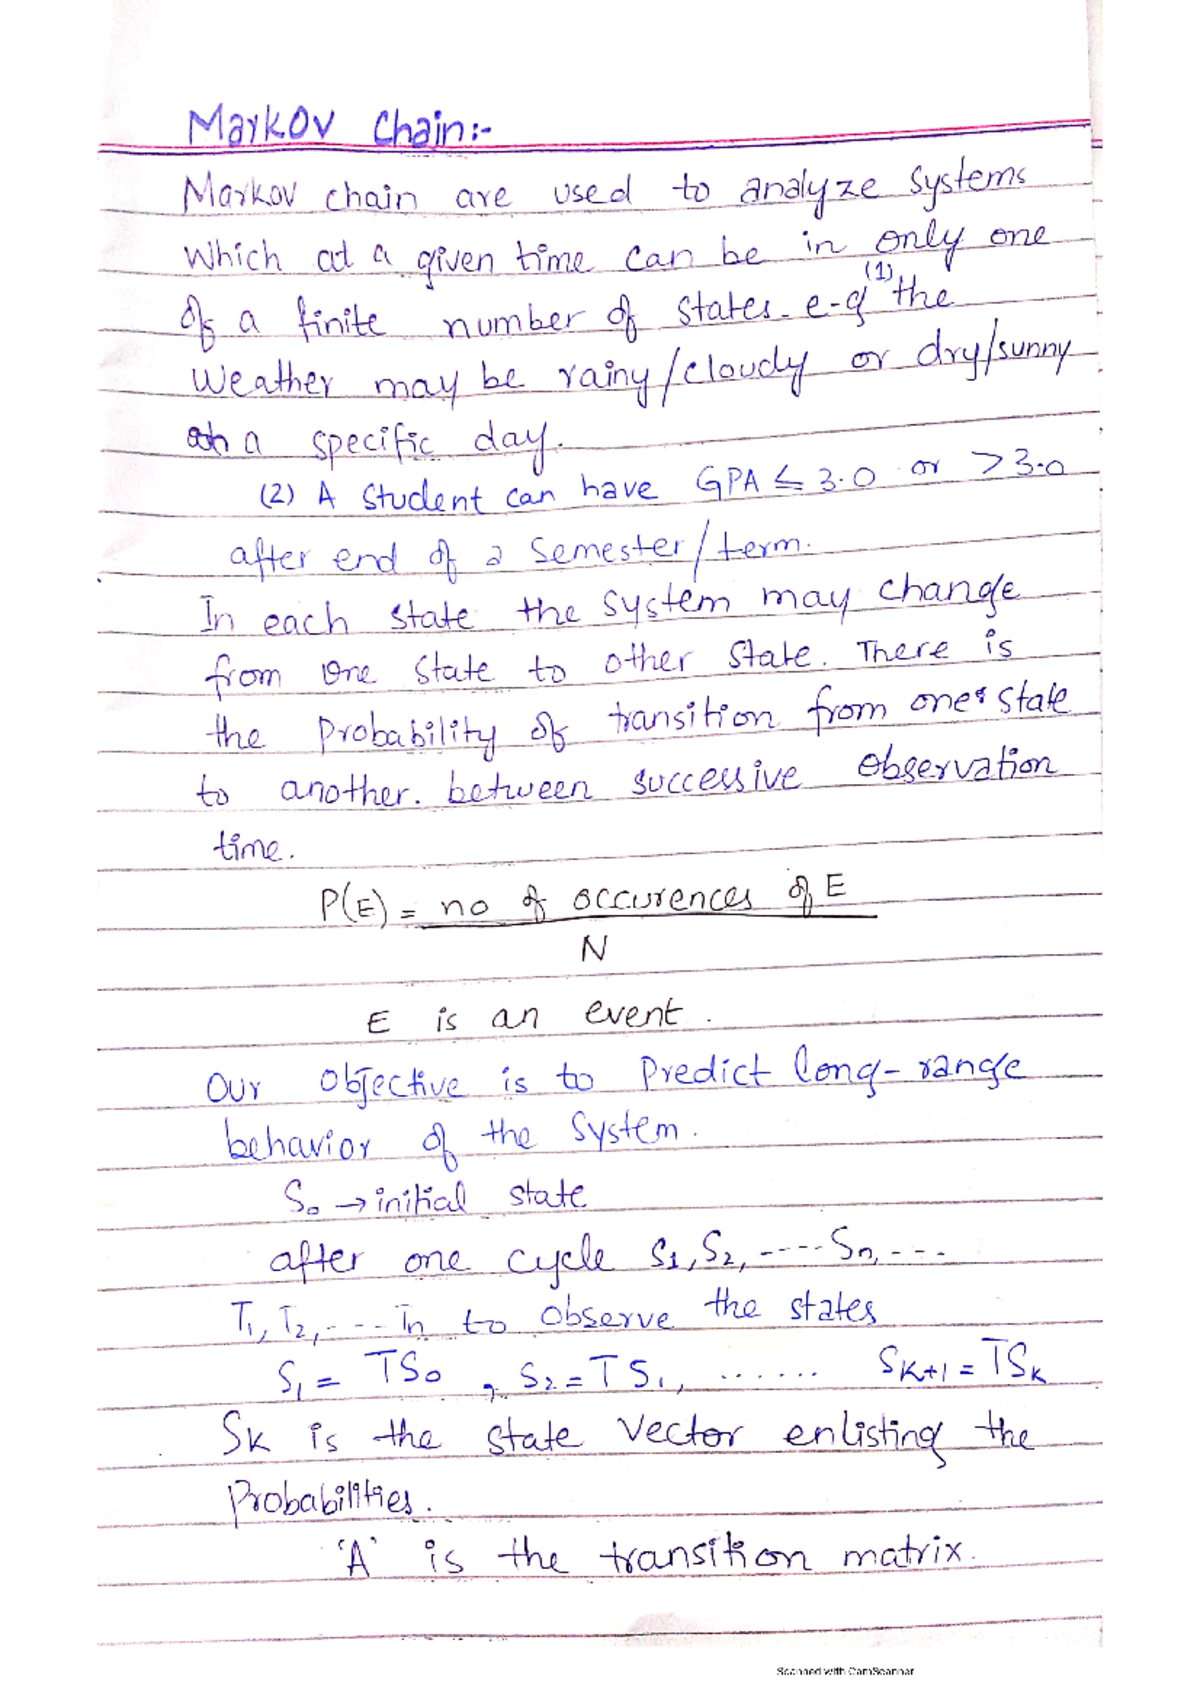 Markov Chain:-
Markov chain are used to analyze systems
which at a given time can be in only one
of a finite number of states. e-g (1) the
weather may be rainy/cloudy or dry/sunny
on a specific day.
(2) A student can have GPA ≤ 3.0 or > 3.0
after end of a semester/term.
In each state the system may change
from one state to other state. There is
the probability of transition from one state
to another. between successive observation
time.
P(E) = no of occurences of E
N
E is an event.
Our objective is to predict long-range
behavior of the system.
S₀ → initial state
after one cycle S₁, S₂, ---- Sn, ---
T₁, T₂, --- Tn to observe the states
S₁ = TS₀ , S₂ = TS₁, ...... SK+1 = TSK
SK is the state vector enlisting the
Probabilities.
'A' is the transition matrix.
Scanned with CamScanner